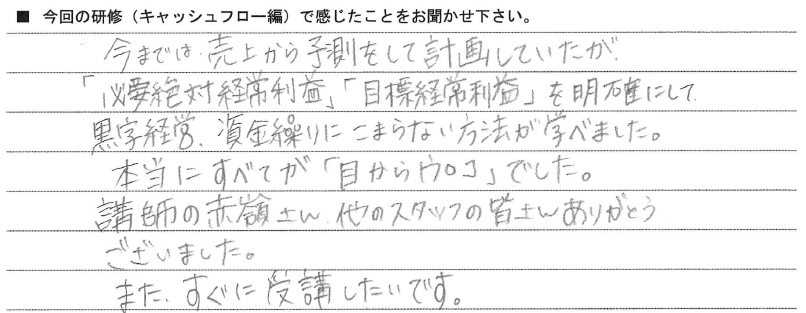 ■ 今回の研修（キャッシュフロー編）で感じたことをお聞かせ下さい。
今までは、売上から予測をして計画していたが
「必要絶対経常利益」「目標経常利益」を明確にして
黒字経営、資金繰りにこまらない方法が学べました。
本当にすべてが「目からウロコ」でした。
講師の赤嶺さん、他のスタッフの皆さんありがとう
ございました。
また、すぐに受講したいです。